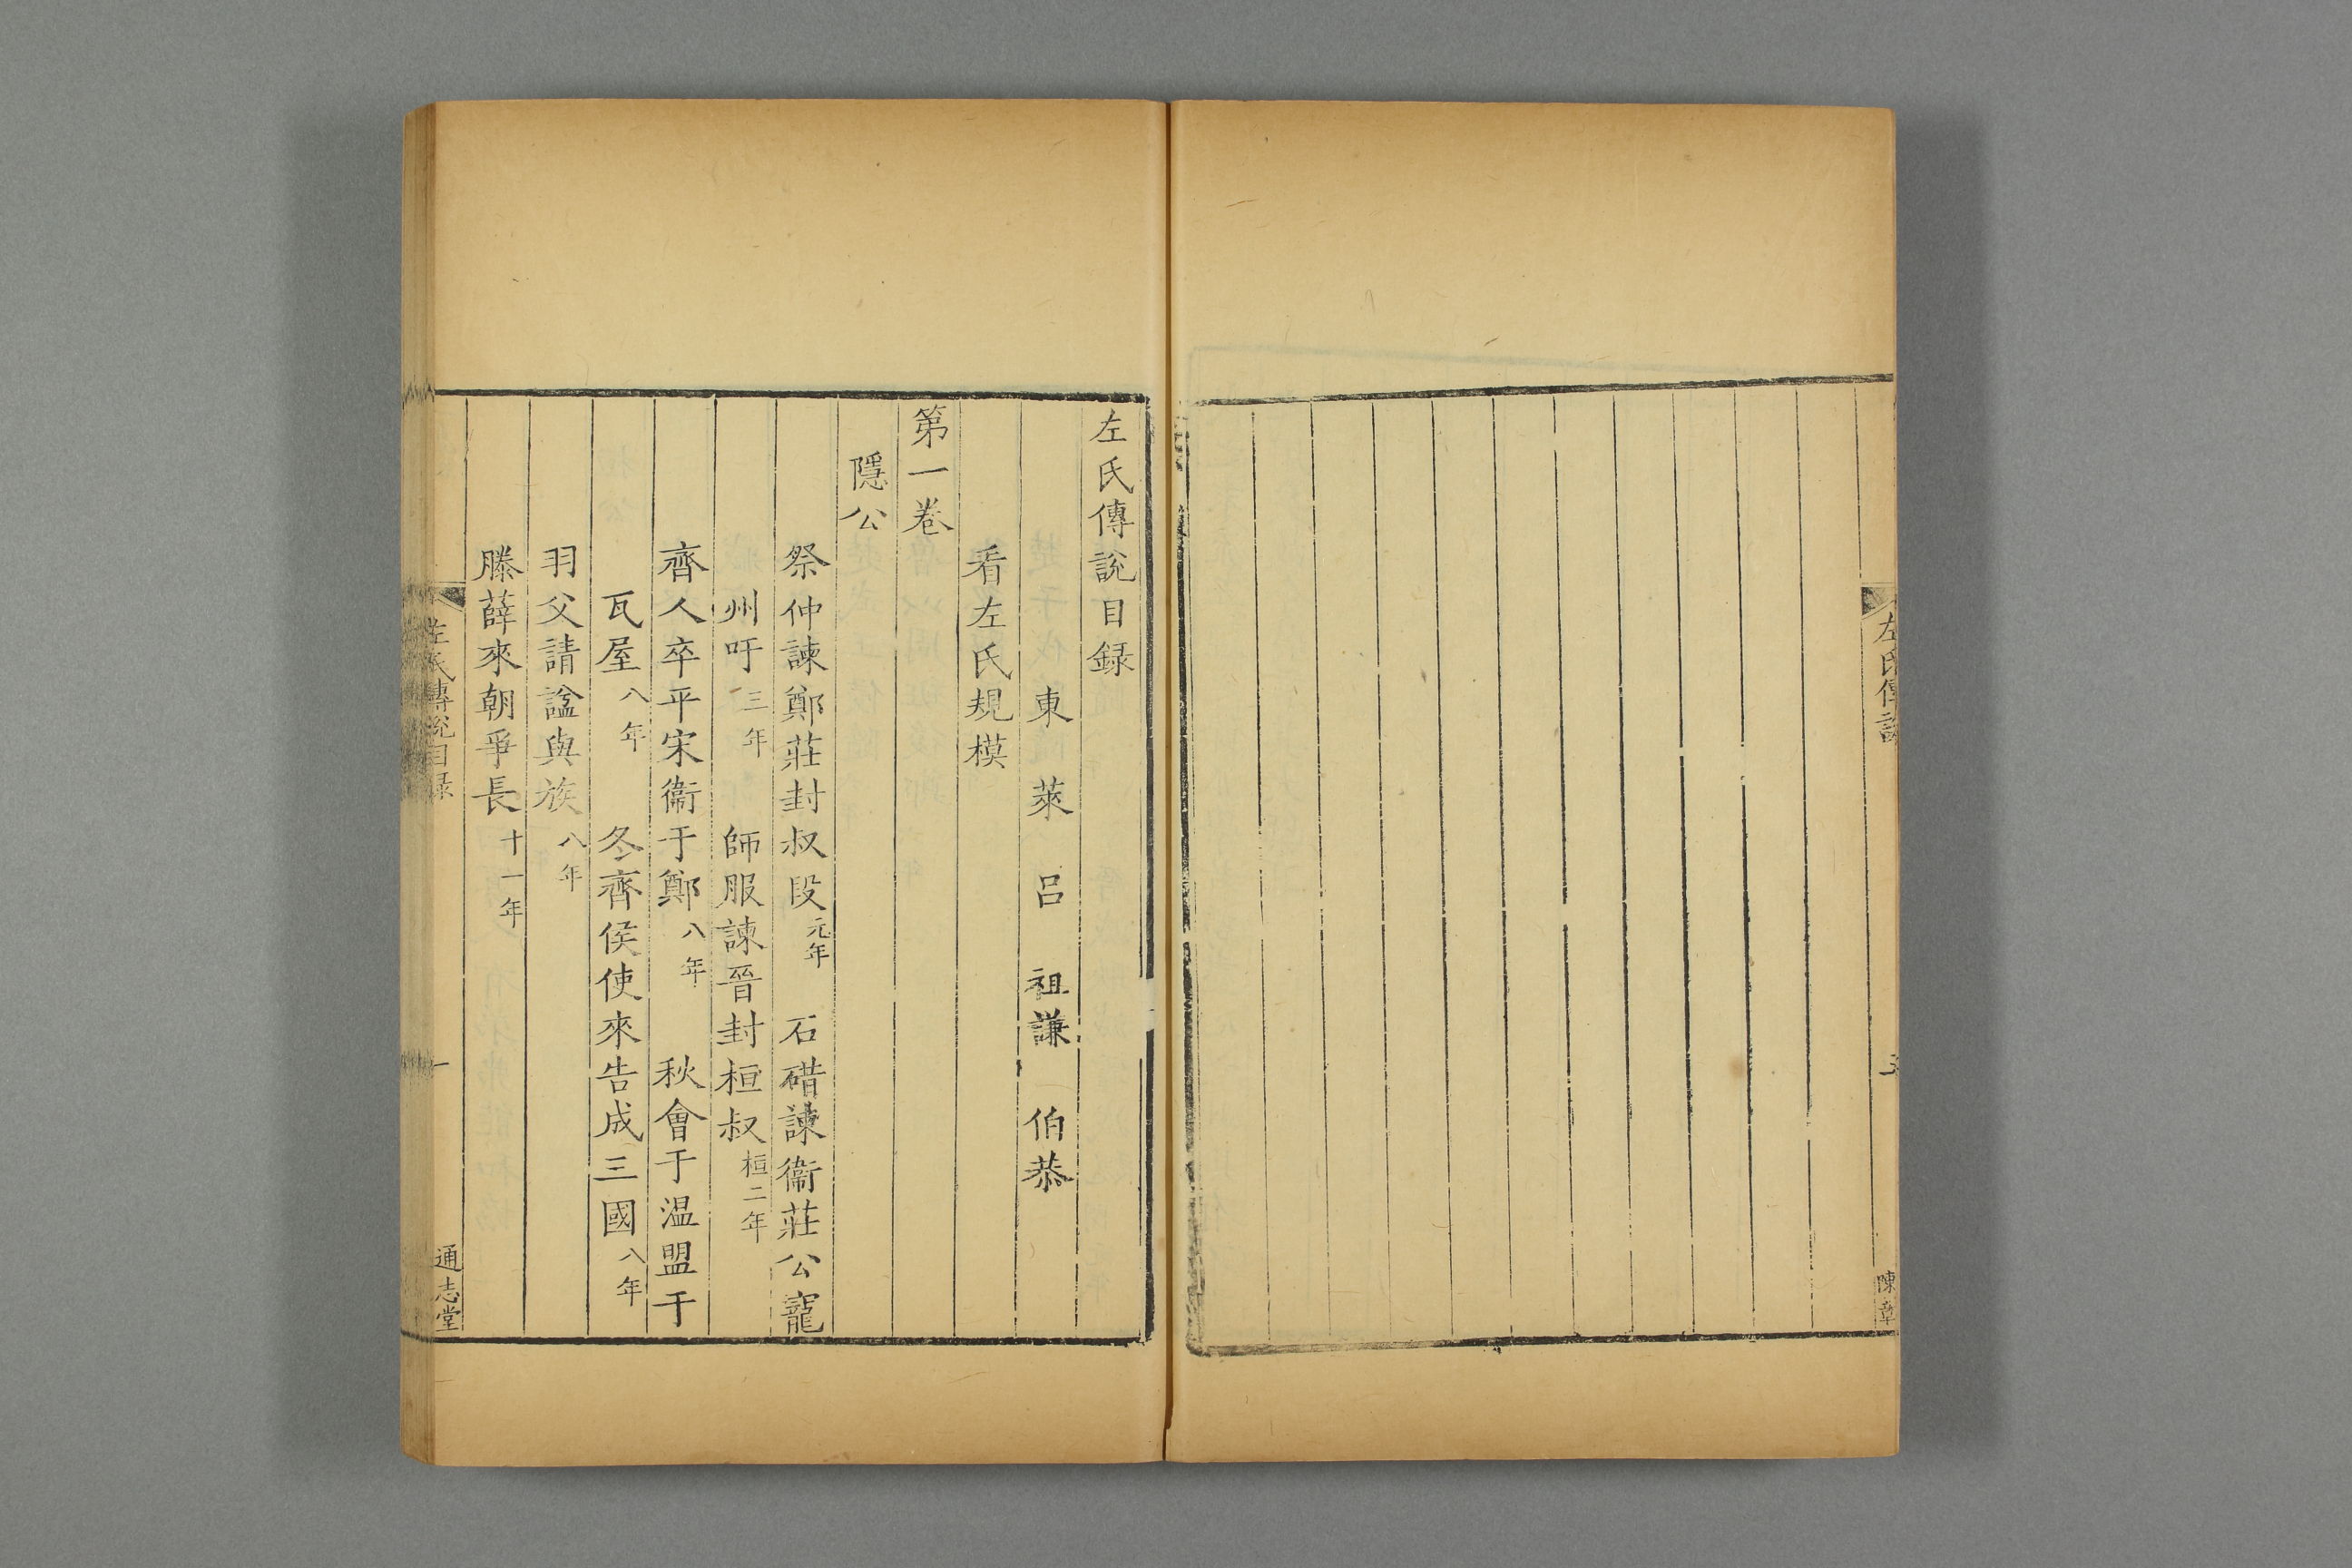 左氏傳説
陳章
左氏傳說目録
東萊 呂 祖謙 伯恭
看左氏規模
第一卷
隱公
祭仲諫鄭莊封叔段元年 石碏諫衞莊公寵
州吁三年 師服諫晉封桓叔桓二年
齊人卒平宋衞于鄭八年 秋會于温盟于
瓦屋八年 冬齊侯使來告成三國八年
羽父請諡與族八年
滕薛來朝爭長十一年
左氏傳說目録
一
通志堂